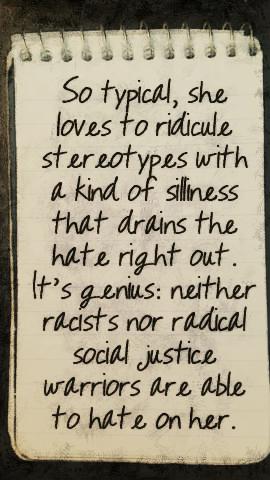 So typical, she
loves to ridicule
stereotypes with
a kind of silliness
that drains the
hate right out.
It's genius: neither
racists nor radical
social justice
warriors are able
to hate on her.